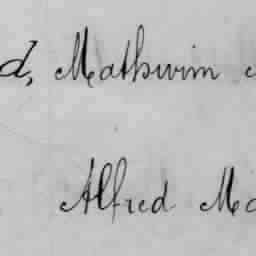 d, Mathwim
Alfred Ma